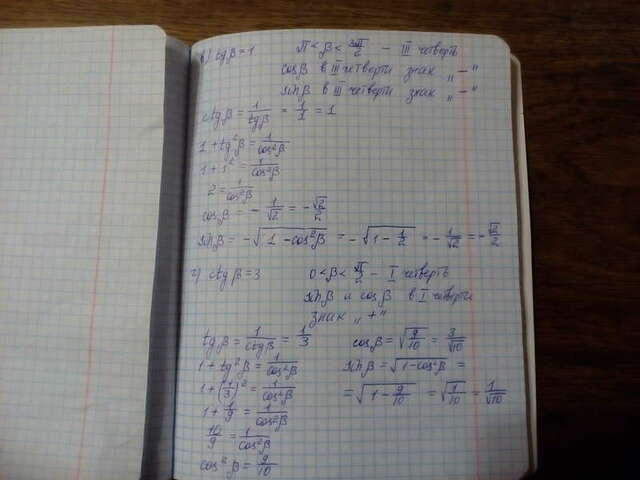 в) tgβ = 1   π < β < 3π/2 – III четверть
cosβ в III четверти знак „–"
sinβ в III четверти знак „–"
ctgβ = 1/tgβ = 1/1 = 1
1 + tg²β = 1/cos²β
1 + 1² = 1/cos²β
2 = 1/cos²β
cosβ = – 1/√2 = – √2/2
sinβ = – √(1 – cos²β) = – √(1 – 1/2) = – 1/√2 = – √2/2
г) ctgβ = 3   0 < β < π/2 – I четверть
sinβ и cosβ в I четверти
знак „+"
tgβ = 1/ctgβ = 1/3   cosβ = √(9/10) = 3/√10
1 + tg²β = 1/cos²β   sinβ = √(1 – cos²β) =
1 + (1/3)² = 1/cos²β   = √(1 – 9/10) = √(1/10) = 1/√10
1 + 1/9 = 1/cos²β
10/9 = 1/cos²β
cos²β = 9/10